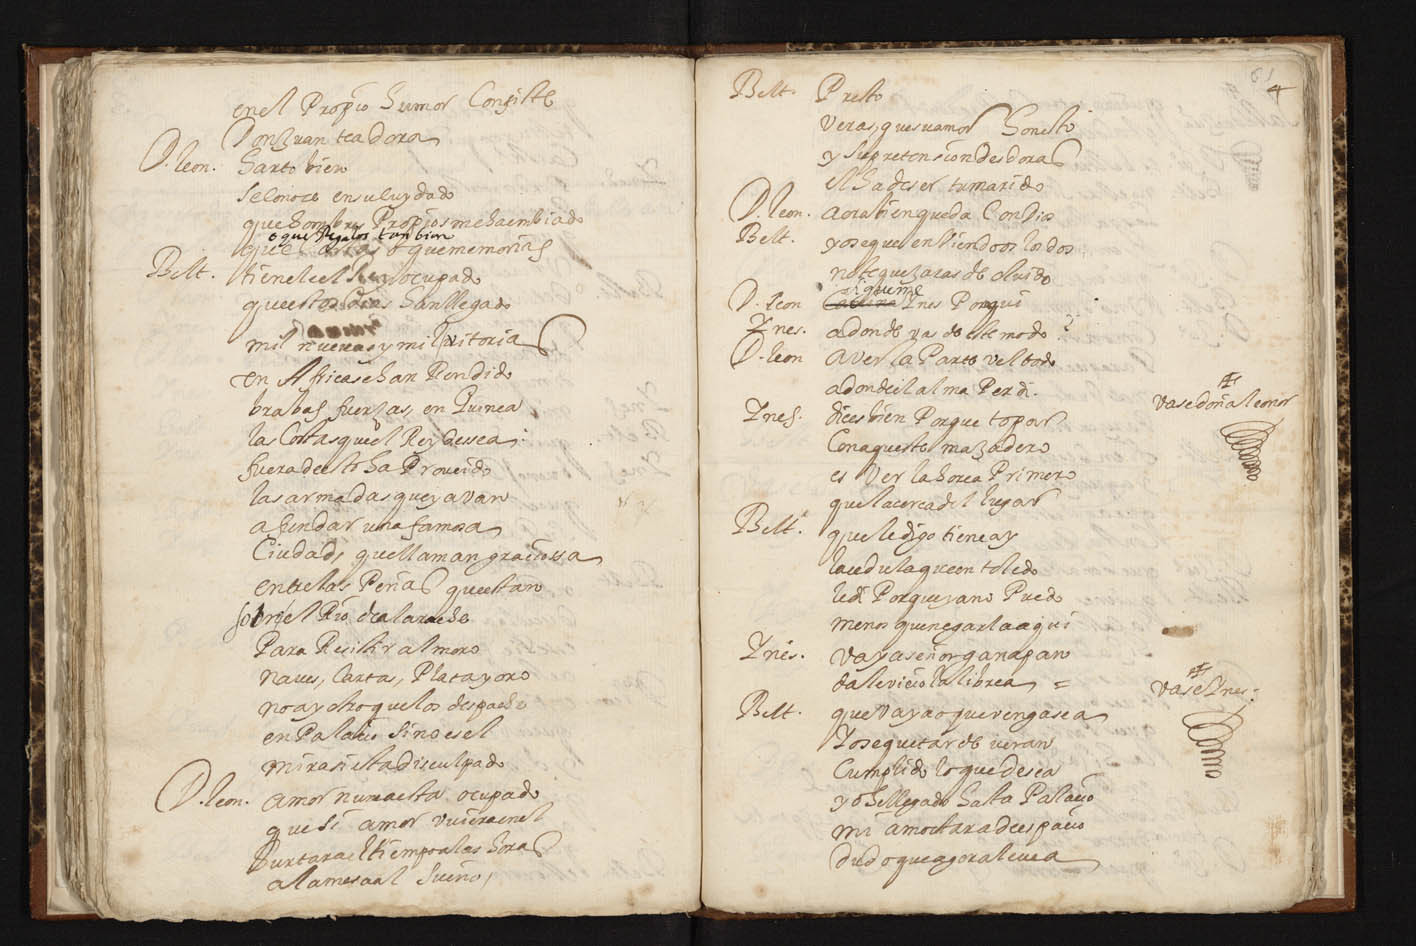 en el Propio humor Consiste
Don Juan te adora
D. leon. harto bien
se Conoce en su cuydado
que hombres Propios me ha embiado
o que Regalos tanbien
que cartas o que memorias
Belt. tienele el Rey ocupado
que estos dias han llegado
mil nuevas y mil vitorias
en Africa se han Rendido
brabas fuerzas, en Guinea
las Costas que el Rey dessea
fuera de esto ha Proveido
las armadas que ya van
a fundar una famosa
Ciudad, que llaman graciossa
entre las Peñas que estan
sobre el Rio de alarache
Para Resistir al moro
naves, Cartas, Plata y oro
no ay otro que los despache
en Palacio sino es el
mira si esta disculpado
D. leon. amor nunca esta ocupado
que si amor vuiera en el
hurtara el tiempo a las horas
a la mesa al sueño,
61
4
Belt. Presto
veras, que su amor honesto
y su pretension desdoras
el ha de ser tu marido
D. leon. aora bien queda Con dios
Belt. yo se que en viendoos los dos
no te quexaras de olvido
sigueme
D. leon Ines Por aqui
Ines. adonde vas de este modo?
D. leon a ver la Parte vel todo
adonde el alma Perdi.
vase doña leonor
Ines. dices bien Porque topar
Con aqueste mazadero
es ver la horca Primero
que la cerca del lugar
Belt. que le digo tiene ay
la cedula que en toledo
le di Porque ya no Puedo
menos que negarla aqui
Ines. vaya señor ganapan
dale vicio la librea
vase Ines.
Belt. que vaya o que venga sea
yo se que tarde veran
Cumplido lo que desea
yo he llegado hasta Palacio
mi amo estara de espacio
dudo que agora le vea